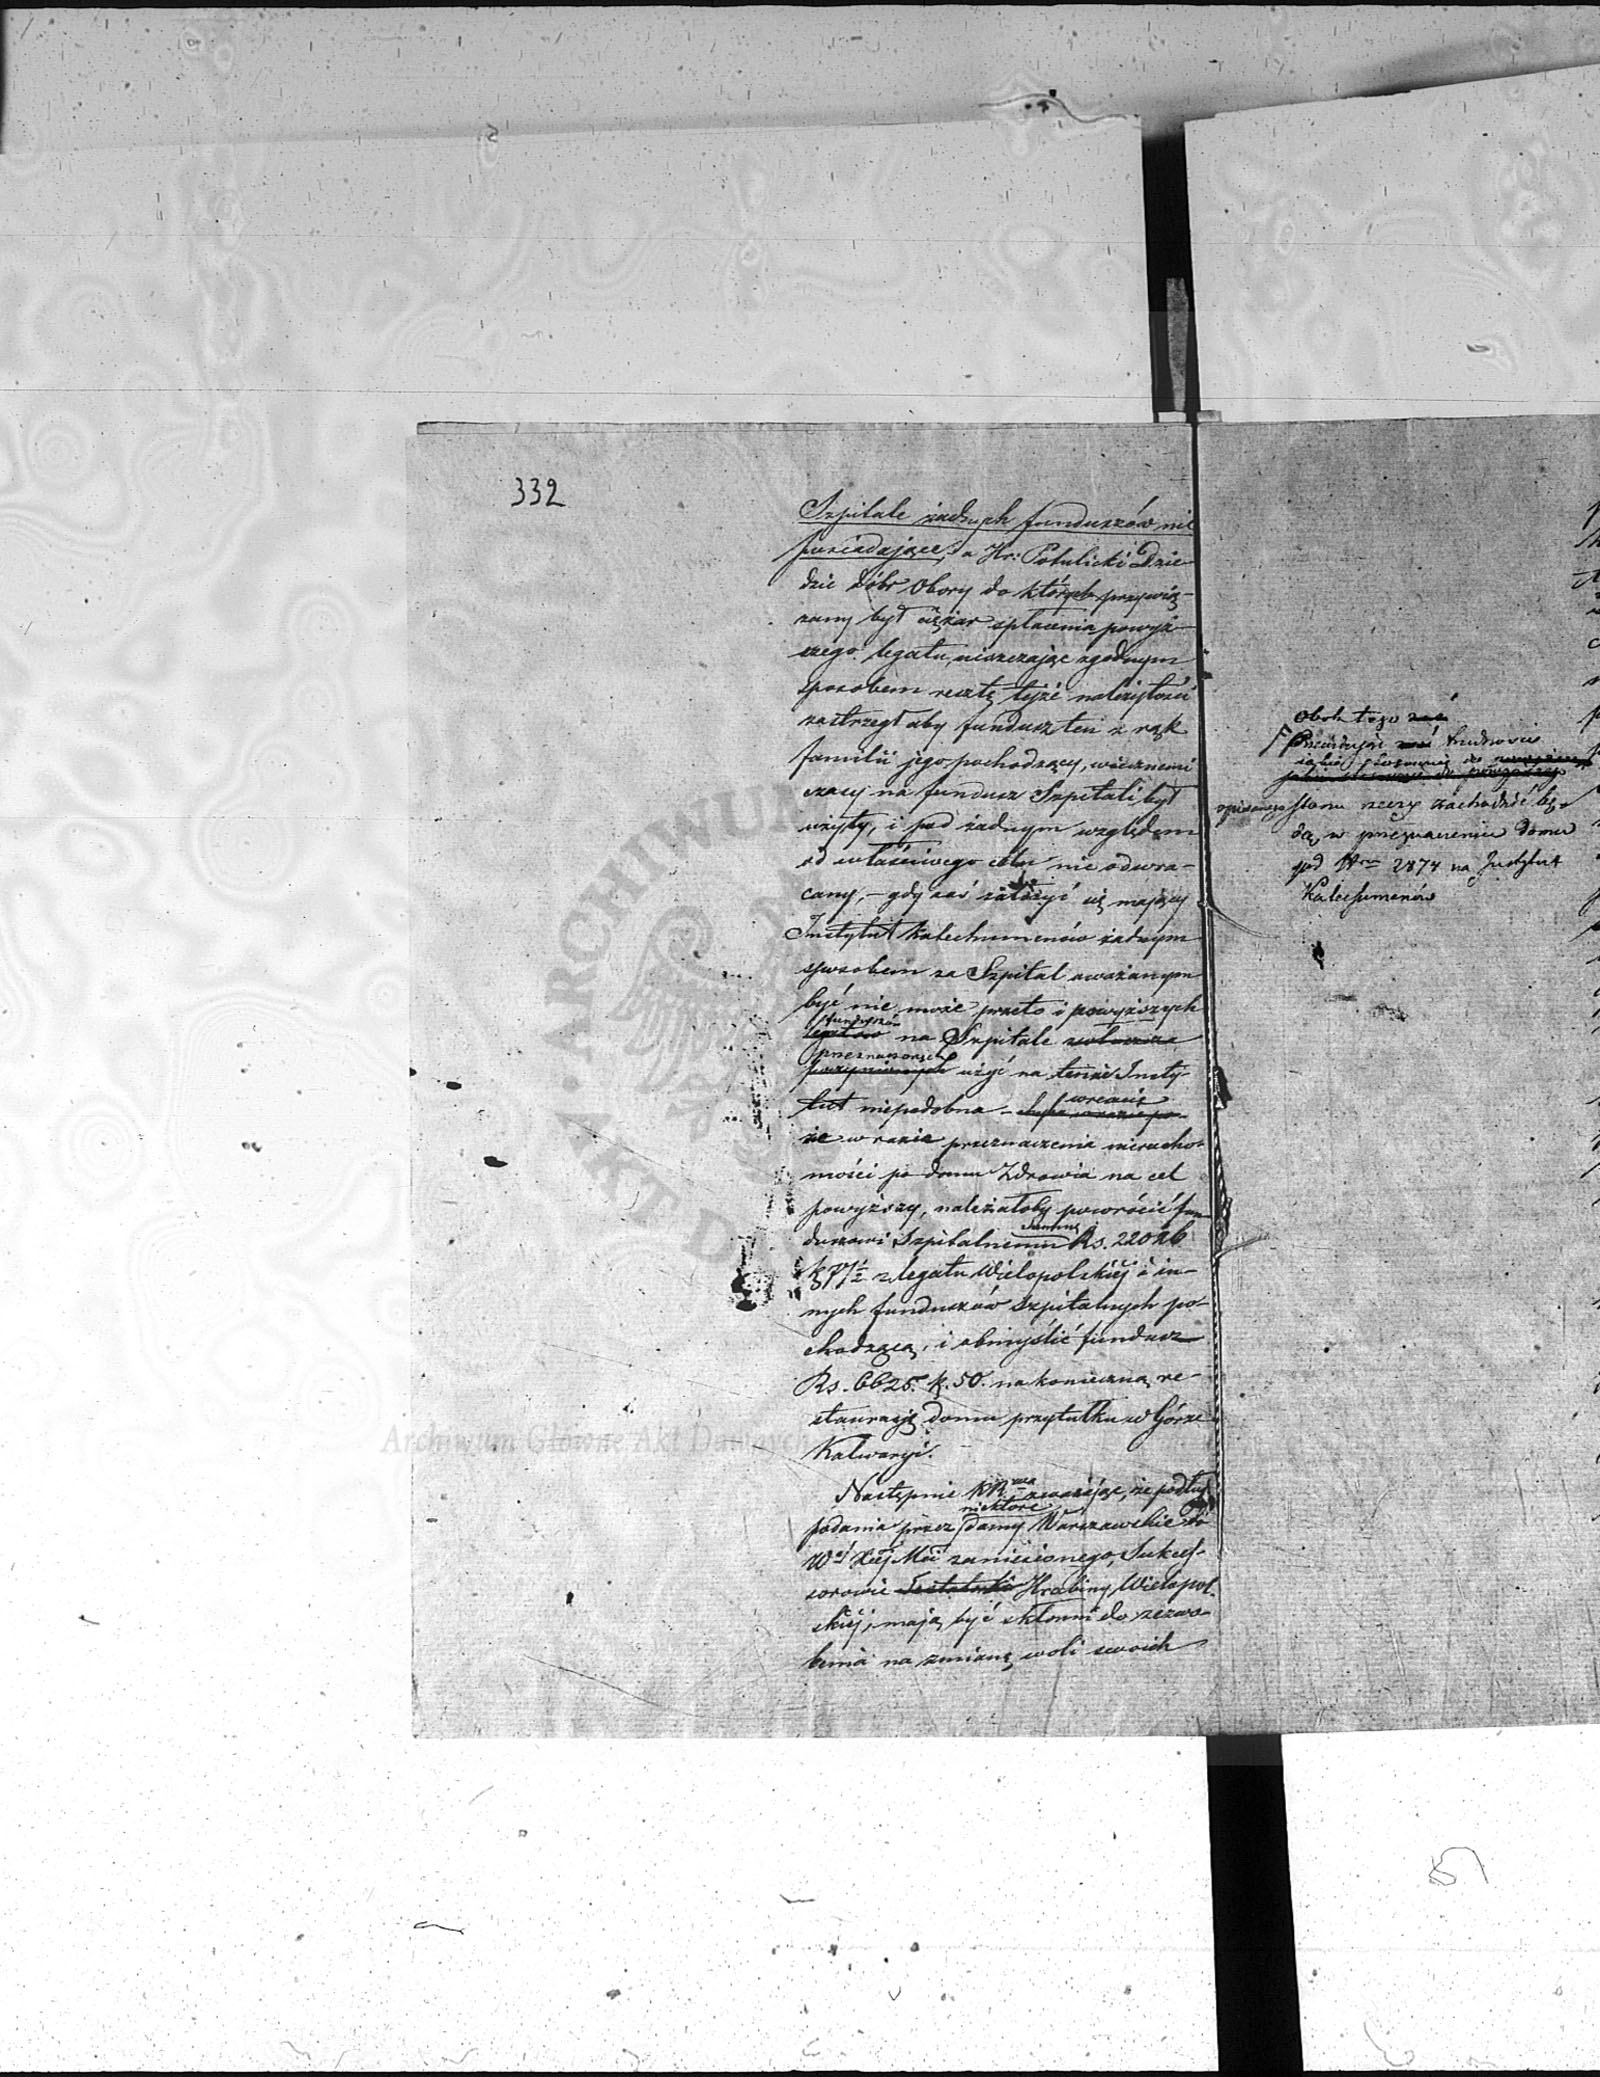 332
Szpitale żadnych funduszów nie
posiadające, a Hr: Potulicki Dzie-
dzic Dóbr Obory do których przywią-
zany był ciężar spłacenia powyż-
szego legatu, uiszczając zgodnym
sposobem resztę tejże należytości
zastrzegł aby fundusz ten z rąk
familii jego pochodzący, wiecznemi
czasy na fundusz Szpitali był
użyty, i pod żadnym względem
od właściwego celu nie odwra-
cany, – gdy zaś założyć się mający
Instytut Katechumenów żadnym
sposobem za Szpital uważanym
być nie może przeto i powyższych
funduszów
legatów na Szpitale
przeznaczonych
poczynionych użyć na tenże Insty-
tut niepodobna –
wreszcie
że w razie przeznaczenia nierucho-
mości po domu Zdrowia na cel
powyższy, należałoby powrócić fun-
Summę
duszowi Szpitalnemu Rs. 22026
k 97½ z legatu Wielopolskiej i in-
nych funduszów szpitalnych po-
chodzącą, i obmyślić fundusz
Rs. 6625. k. 50. na konieczną re-
stauracją domu przytułku w Górze
Kalwaryi.
Następnie KR zważając, że podług
niektóre
podania przez damy Warszawskie do
W Xcej Mci zaniesionego, Sukces-
sorowie Hrabiny Wielopol-
skiej, mają być skłonni do zezwo-
lenia na zmianę woli swoich
Obok tego
trudności
opisanego stanu rzeczy zachodzić bę-
dą w przeznaczeniu domu
pod Nrm 2874 na Instytut
Katechumenów
ARCHIWUM
AKT D
Archiwum Główne Akt Dawnych